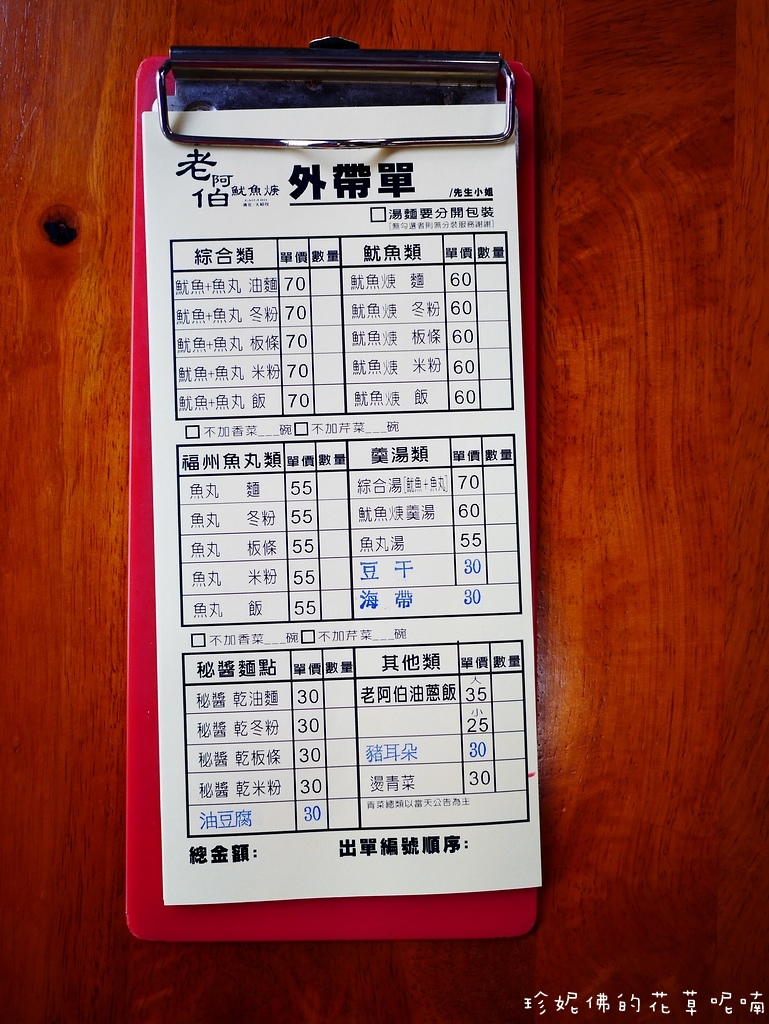 老阿伯魷魚焿 外帶單 /先生小姐
□湯麵要分開包裝
綜合類 單價 數量 魷魚類 單價 數量
魷魚+魚丸 油麵 70 魷魚焿 麵 60
魷魚+魚丸 冬粉 70 魷魚焿 冬粉 60
魷魚+魚丸 板條 70 魷魚焿 板條 60
魷魚+魚丸 米粉 70 魷魚焿 米粉 60
魷魚+魚丸 飯 70 魷魚焿 飯 60
□不加香菜___碗□不加芹菜___碗
福州魚丸類 單價 數量 羹湯類 單價 數量
魚丸 麵 55 綜合湯[魷魚+魚丸] 70
魚丸 冬粉 55 魷魚焿羹湯 60
魚丸 板條 55 魚丸湯 55
魚丸 米粉 55 豆干 30
魚丸 飯 55 海帶 30
□不加香菜___碗□不加芹菜___碗
秘醬麵點 單價 數量 其他類 單價 數量
秘醬 乾油麵 30 老阿伯油蔥飯 大35
秘醬 乾冬粉 30 小25
秘醬 乾板條 30 豬耳朵 30
秘醬 乾米粉 30 燙青菜 30
油豆腐 30 青菜總類以當天公告為主
總金額: 出單編號順序:
珍妮佛的花草呢喃